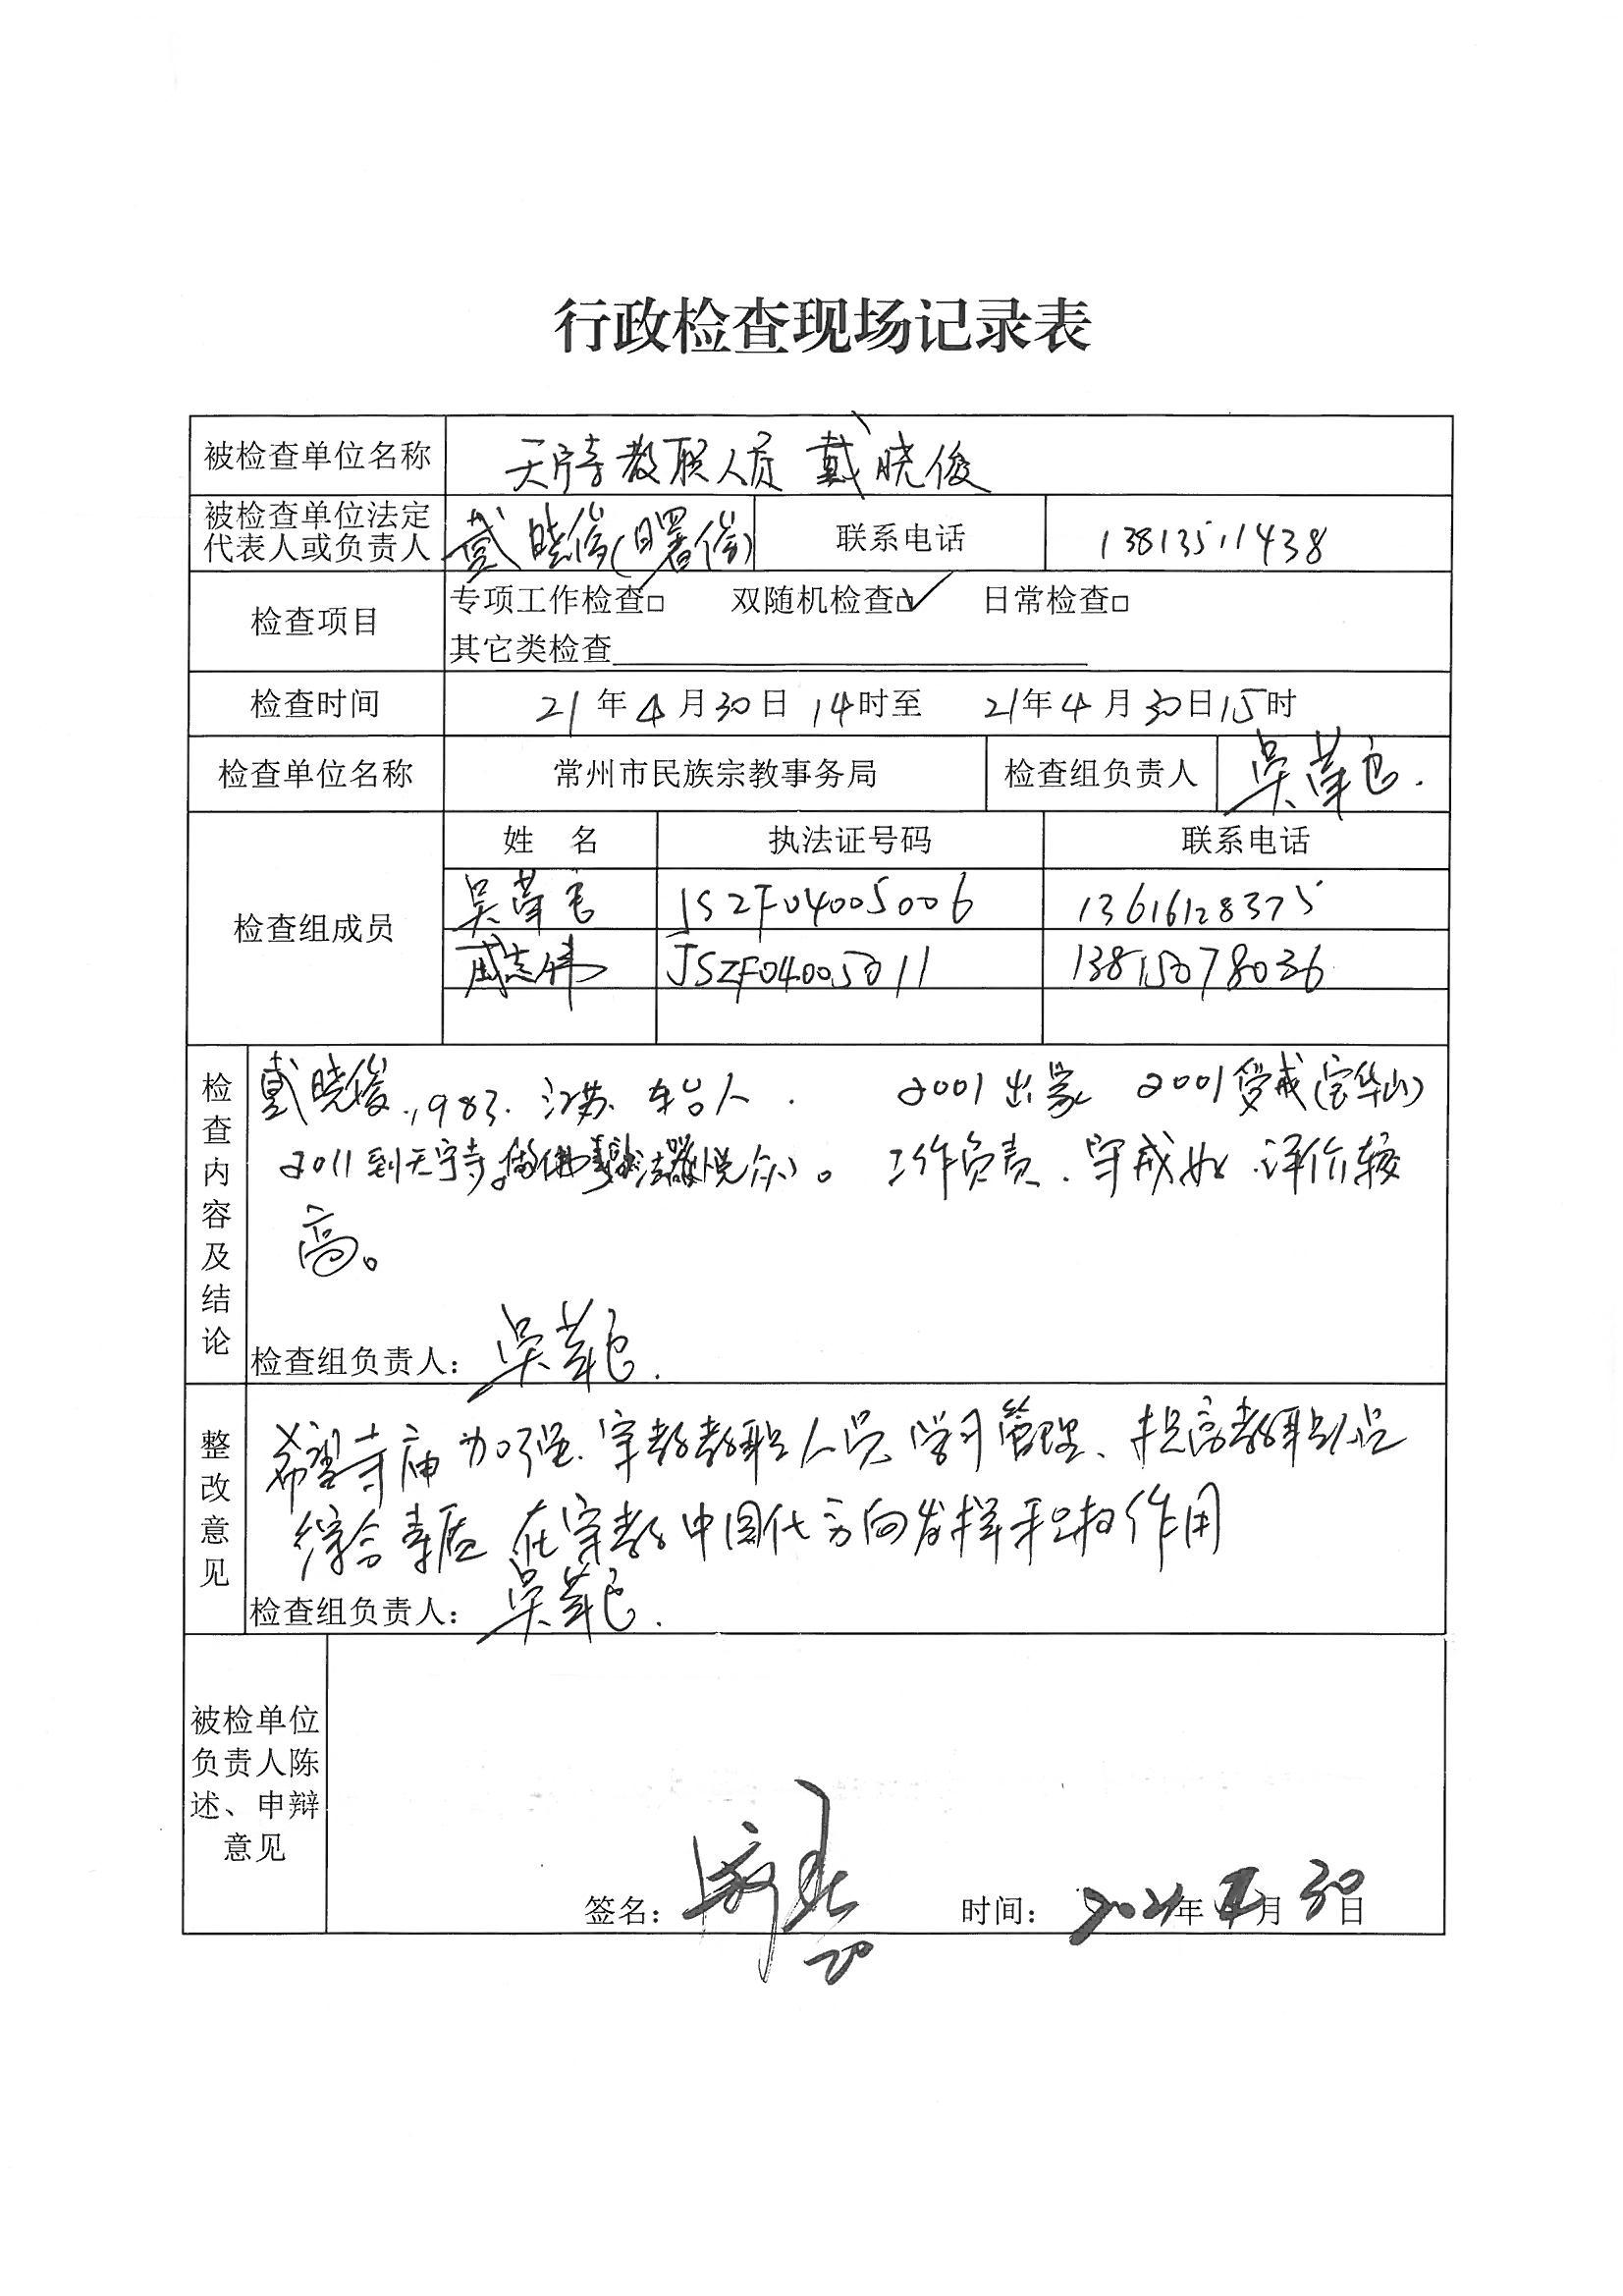 行政检查现场记录表
被检查单位名称 天宁寺教职人员 戴晓俊
被检查单位法定代表人或负责人 戴晓俊(曙俊) 联系电话 13813511438
检查项目 专项工作检查□ 双随机检查☑ 日常检查□
其它类检查
检查时间 21年4月30日14时至 21年4月30日15时
检查单位名称 常州市民族宗教事务局 检查组负责人 吴
检查组成员 姓 名 执法证号码 联系电话
吴 JSZF04005006 13616128375
志伟 JSZF04005011 13815078036
检查内容及结论
戴晓俊.1983.江苏.东台人. 2001出家 2001受戒(宝华山)
2011到天宁寺。做佛事(法器悦众)。工作负责.守戒好.评价较
高。
检查组负责人: 吴
整改意见
希望寺庙加强宗教教职人员学习管理、提高教职人员
综合素质 在宗教中国化方向发挥积极作用
检查组负责人: 吴
被检单位负责人陈述、申辩意见
签名: 时间: 2021年4月30日